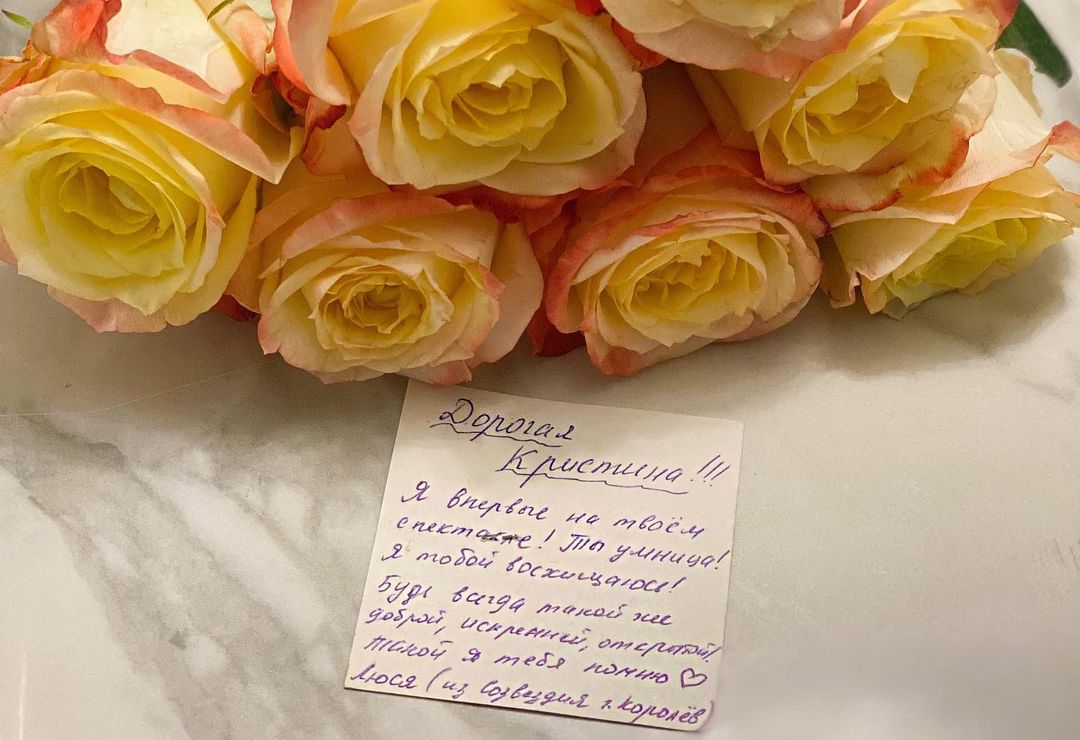 Дорогая
Кристина!!!
Я впервые на твоём
спектакле! Ты умница!
Я тобой восхищаюсь!
Будь всегда такой же
доброй, искренней, открытой!
Такой я тебя помню ♡
Люся (из Созвездия г. Королёв)